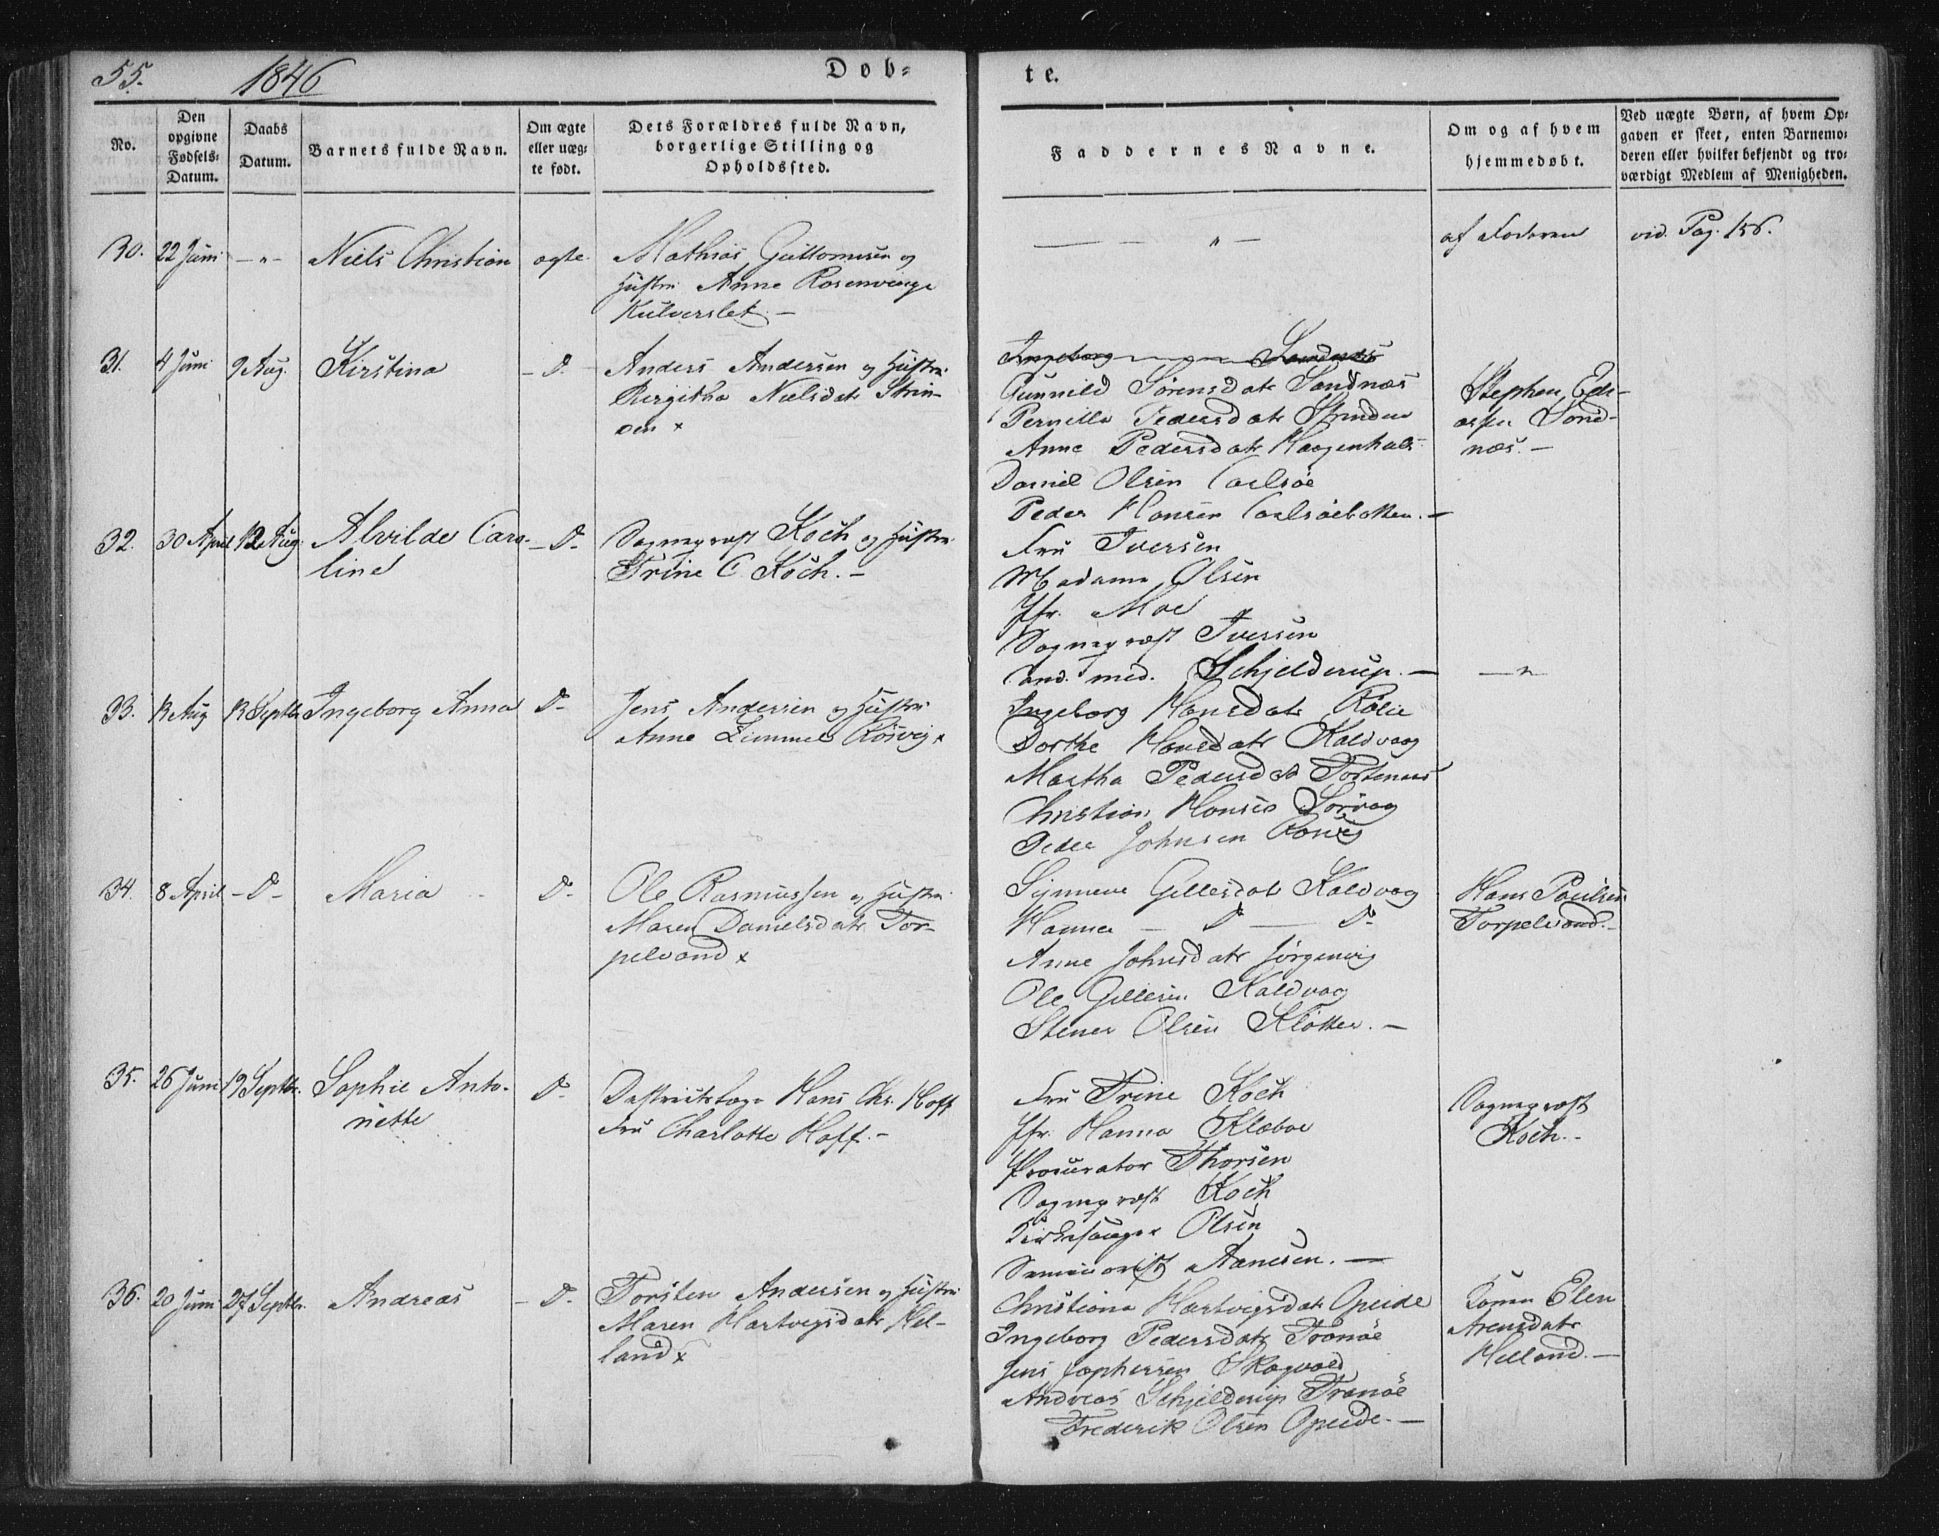 55. 1846 Døb- te.
No.
Den opgivne Fødsels-Datum.
Daabs Datum.
Barnets fulde Navn.
Om ægte eller uægte født.
Dets Forældres fulde Navn, borgerlige Stilling og Opholdssted.
Faddernes Navne.
Om og af hvem hjemmedøbt.
Ved uægte Børn, af hvem Opgaven er skeet, enten Barnemoderen eller hvilket bekjendt og troværdigt Medlem af Menigheden.
30. 22 Juni -"- Niels Christian ægte.
Mathias Guttormsen og
Hustru Anne Rosenvinge
Kulverslet. -
— " —
af Faderen
vid. Pag. 156.
31. 4 Juni 9 Aug. Kirstina - D. -
Anders Andersen og Hustru
Birgitha Nielsdatr Strin-
den x
Ingeborg Sandnæs
Gunnild Sørensdatr Sandnæs
Pernilla Pedersdatr Strinden
Anne Pedersdatr Haagenhals
Daniel Olsen Carlsøe
Peder Hansen Carlsøebotten. -
Stephen Ed-
næs. -
32. 30 April 12 Aug. Alvilde Caro-
line
- D -
Sognepræst Koch og Hustru
Trine C Koch. -
Fru Iversen
Madame Olsen
Jfr. Moe
Sognepræst Iversen
cand. med. Schjelderup. -
— " —
33. 12 Aug 13 Septbr. Ingeborg Anna D -
Jens Andersen og Hustru
Anne Zimmer Rosvig x
Ingeborg Hansdatr
Dorthe Hansdatr Kaldvaag
Martha Pedersdatr
Christian Hansen Sørvaag
Peder Johnsen Rosvig
34. 8 April - D - Maria - D -
Ole Rasmussen og Hustru
Maren Danielsdatr Tor-
pelvand x
Synneve Gillesdatr Kaldvaag
Hanna — D — D
Anne Johnsdatr Jørgenvig
Ole Gillesen Kaldvaag
Stener Olsen Kløtten. -
Hans Paulsen
Torpelvand. -
35. 26 Juni 13 Septbr. Sophie Anto-
nette
D -
Distriktslæge Hans Chr. Hoff
Fru Charlotte Hoff. -
Fru Trine Koch
Jfr. Hanna Klæboe
Procurator Thorsen
Sognepræst Koch
Kirkesanger Olsen
Seminarist Aanesen. -
Sognepræst
Koch. -
36. 20 Juni 27 Septbr. Andreas - D -
Torsten Andersen og Hustru
Maren Hartvigsdatr Hel-
land x
Christiana Hartvigsdatr Opeide
Ingeborg Pedersdatr Tranøe
Jens Jophersen Skogvold
Andreas Schjelderup Tranøe
Frederik Olsen Opeide. -
Konen Elen
Arensdatr
Helland. -